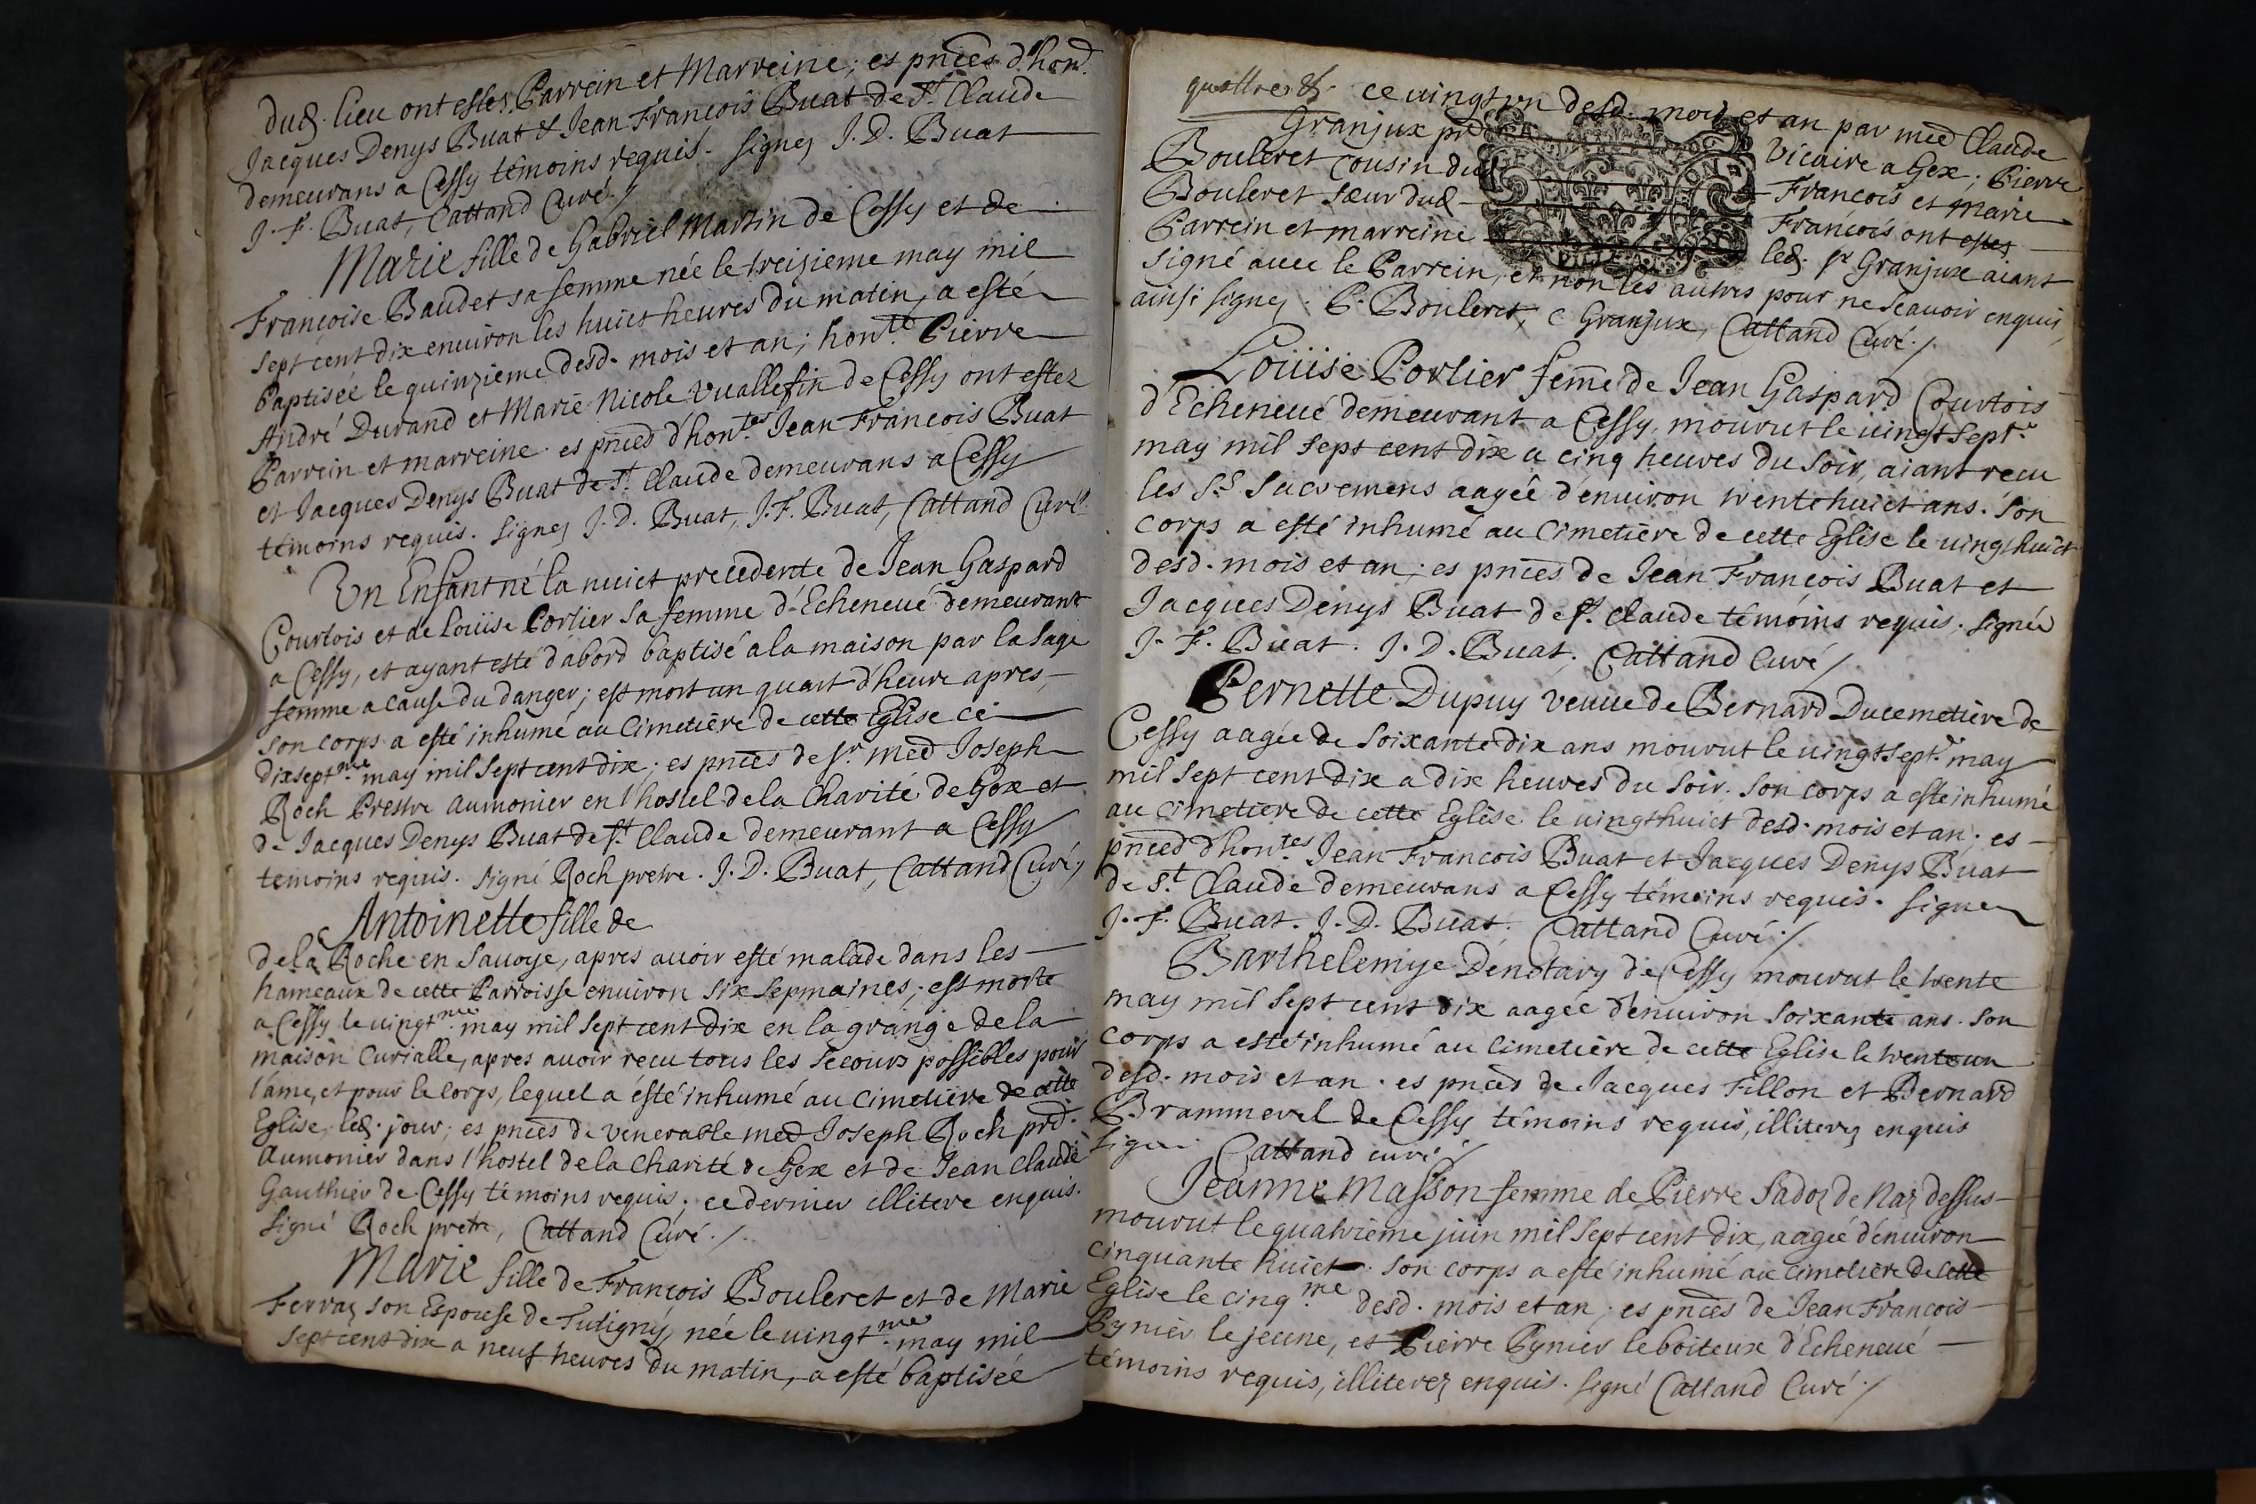 dud. lieu ont estes Parrein et Marreine; es pnces d'hon.
Jacques Denys Buat & Jean François Buat de St. Claude
demeurans a Cessy témoins requis. signez J. D. Buat
J. F. Buat, Cattand Curé./
Marie fille de Gabriel Martin de Cessy et de
Françoise Baudet sa femme née le treizieme may mil
sept cent dix enuiron les huict heures du matin, a esté
baptisée le quinzieme desd. mois et an; hon.te Pierre
André Durand et Marie Nicole Vuallefin de Cessy ont estez
Parrein et marreine. es pnces d'hon.tes Jean François Buat
et Jacques Denys Buat de St. Claude demeurans a Cessy
témoins requis. signez J. D. Buat, J. F. Buat, Cattand Curé.
Un Enfant né la nuict precedente de Jean Gaspard
Courtois et de Loüise Porlier sa femme d'Echeneué demeurant
a Cessy, et ayant esté d'abord baptisé a la maison par la sage
femme a cause du danger; est mort un quart d'heure apres,
son corps a esté inhumé au Cimetière de cette Eglise ce
dixsept.me may mil sept cent dix; es pnces de sr. med Joseph
Roch Prestre aumonier en l'hostel de la Charité de Gex et
de Jacques Denys Buat de St. Claude demeurant a Cessy
temoins requis. signé Roch pretre. J. D. Buat, Cattand Curé,
Antoinette fille de
de la Roche en Sauoye, apres auoir esté malade dans les
hameaux de cette Parroisse enuiron six sepmaines; est morte
a Cessy le vingt.me may mil sept cent dix en la grange de la
maison Curialle, apres auoir recu tous les secours possibles pour
l'ame, et pour le corps, lequel a ésté inhumé au cimetière de cette
Eglise, led. jour; es pnces de venerable med Joseph Roch prd.
aumonier dans l'hostel de la Charité de Gex et de Jean Claude
Gauthier de Cessy témoins requis; ce dernier illitere enquis.
signé Roch pretre, Cattand Curé./.
Marie fille de François Bouleret et de Marie
Ferraz son Espouse de Tutigny, née le uingt.me may mil
sept cent dix a neuf heures du matin, a esté baptisée
quattre &.
ce uingt vn desd. mois et an par med Claude
Granjux prd. Vicaire a Gex; Pierre
Bouleret cousin dud. François et Marie
Bouleret sœur dud. François ont estes
Parrein et marreine led. sr Granjux aiant
signé auec le Parrein, et non les autres pour ne scauoir enquis,
ainsi signez. P. Bouleret, C Granjux, Cattand Curé./.
Loüise Porlier fem̄e de Jean Gaspard Courtois
d'Echeneué demeurant a Cessy, mourut le uingt sept.e
may mil sept cent dix a cinq heures du soir, aiant recu
les Sts Sacremens aagée d'enuiron trente huict ans. Son
corps a esté inhumé au Cimetière de cette Eglise le uingt huict
desd. mois et an; es pnces de Jean François Buat et
Jacques Denys Buat de St. Claude témoins requis. signée
J. F. Buat. J. D. Buat. Cattand Curé/
Pernette Dupuy veuue de Bernard Ducemetière de
Cessy aagée de soixante dix ans mourut le uingt sept.e may
mil sept cent dix a dix heures du soir. Son corps a esté inhumé
au cimetière de cette Eglise le uingt huict desd. mois et an; es
pnces d'hon.tes Jean François Buat et Jacques Denys Buat
de St. Claude demeurans a Cessy témoins requis. signez
J. F. Buat. J. D. Buat. Cattand Curé./
Barthelemye Dénotary de Cessy mourut le trente
may mil sept cent dix aagée d'enuiron soixante ans. Son
corps a esté inhumé au Cimetière de cette Eglise le trente un
desd. mois et an. es pnces de Jacques Fillon et Bernard
Brammerel de Cessy témoins requis, illiterez enquis
signé Cattand curé/
Jeanne Masson femme de Pierre Sadoz de Naz dessus
mourut le quatrieme juin mil sept cent dix, aagée d'enuiron
cinquante huict. Son corps a esté inhumé au cimetière de cette
Eglise le cinq.me desd. mois et an; es pnces de Jean François
Pynier le jeune, et Pierre Pynier le boiteux d'Echeneué
témoins requis, illiterez enquis. signé Cattand Curé./